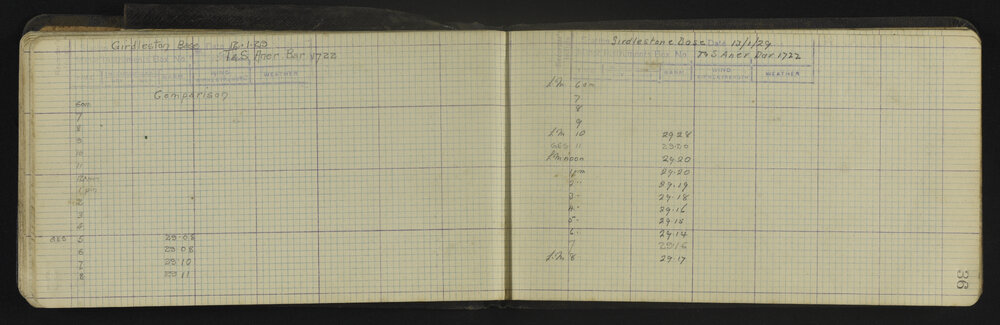 Girdleston Base Date 12.1.29
Instruments Box No T&S Aner. Bar 1722
BARM WIND WEATHER
Comparison
6am
7
8
9
10
11
1pm
2
3
4
GES 5 29.08
6 29.08
7 29.10
8 29.11
Girdlestone Base Date 13/1/29
Instruments Box No. T&S Aner Bar 1722
BARM WIND WEATHER
L.M. 6am
7
8
9
L.M. 10 29.28
GES 11 29.20
L.M. noon 29.20
1pm 29.20
2" 29.19
3" 29.18
4" 29.16
5" 29.15
6" 29.14
7 29.16
L.M. 8 29.17
36